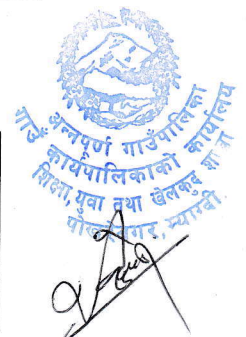 अन्नपूर्ण गाउँपालिका
गाउँ कार्यपालिकाको कार्यालय
शिक्षा, युवा तथा खेलकुद शाखा
म्याग्दी